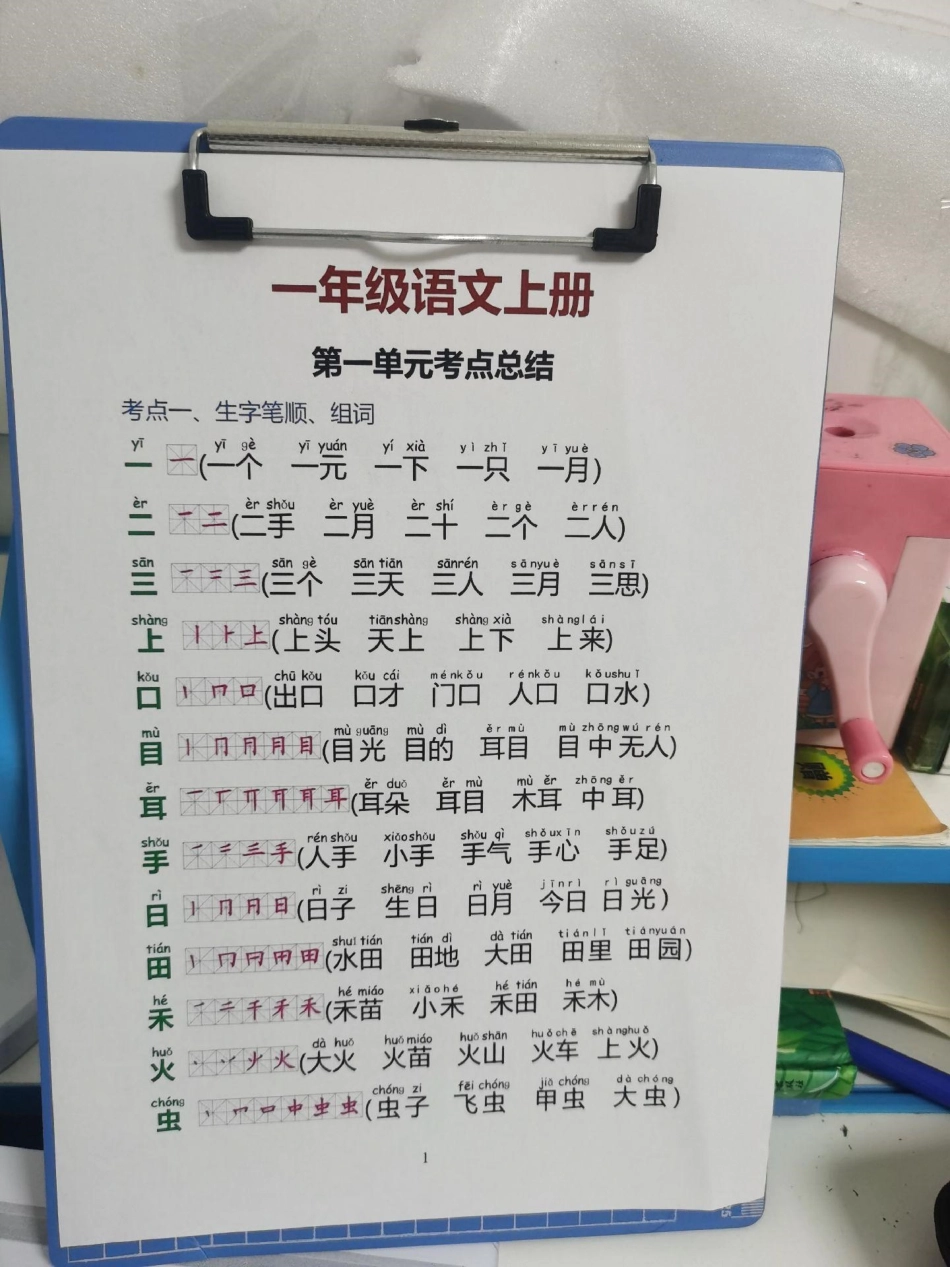 一年级语文上册
第一单元考点总结
考点一、生字笔顺、组词
yī yī gè yī yuán yí xià yì zhī yī yuè
一 一(一个 一元 一下 一只 一月)
èr èr shǒu èr yuè èr shí èr gè èr rén
二 一二(二手 二月 二十 二个 二人)
sān sān gè sān tiān sānrén sānyuè sānsī
三 一二三(三个 三天 三人 三月 三思)
shàng shàng tóu tiānshàng shàng xià shànglái
上 丨⺊上(上头 天上 上下 上来)
kǒu chū kǒu kǒu cái ménkǒu rénkǒu kǒushuǐ
口 丨冂口(出口 口才 门口 人口 口水)
mù mù guāng mù dì ěr mù mù zhōng wú rén
目 丨冂月月目(目光 目的 耳目 目中无人)
ěr ěr duǒ ěr mù mù ěr zhōng ěr
耳 一丅丌耳(耳朵 耳目 木耳 中耳)
shǒu rén shǒu xiǎoshǒu shǒu qì shǒuxīn shǒuzú
手 一二三手(人手 小手 手气 手心 手足)
rì rì zi shēng rì rì yuè jīnrì rì guāng
日 丨冂月日(日子 生日 日月 今日 日光)
tián shuǐ tián tián dì dà tián tiánlǐ tiányuán
田 丨冂冃用田(水田 田地 大田 田里 田园)
hé hé miáo xiǎohé hé tián hé mù
禾 一二千禾禾(禾苗 小禾 禾田 禾木)
huǒ dà huǒ huǒ miáo huǒ shān huǒchē shànghuǒ
火 丶丷火火(大火 火苗 火山 火车 上火)
chóng chóng zi fēi chóng jiǎ chóng dà chóng
虫 丨冂口中虫虫(虫子 飞虫 甲虫 大虫)
1